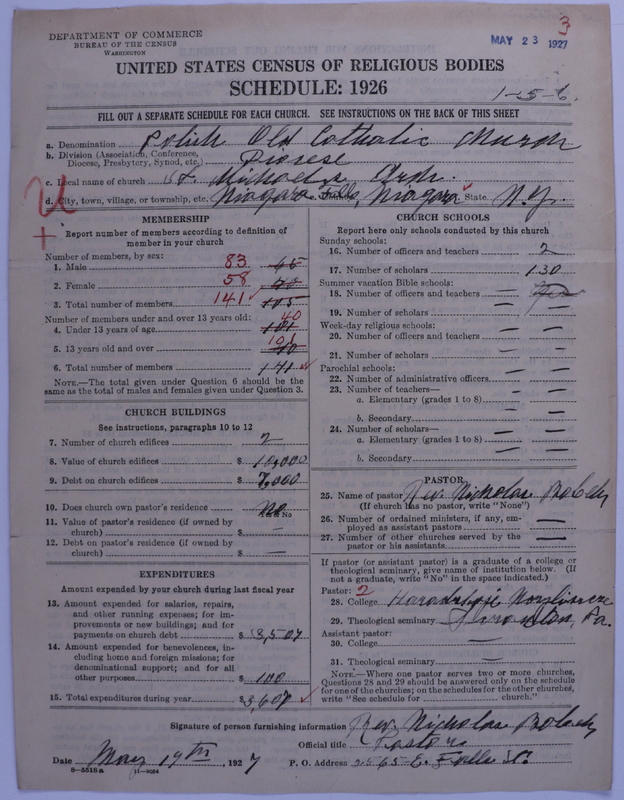 3
DEPARTMENT OF COMMERCE
BUREAU OF THE CENSUS
WASHINGTON
MAY 23 1927
UNITED STATES CENSUS OF RELIGIOUS BODIES
SCHEDULE: 1926
1-5-6.
FILL OUT A SEPARATE SCHEDULE FOR EACH CHURCH. SEE INSTRUCTIONS ON THE BACK OF THIS SHEET
a. Denomination Polish Old Catholic Church
b. Division (Association, Conference, Diocese, Presbytery, Synod, etc.) Diocese
c. Local name of church St. Michael
d. City, town, village, or township, etc. Niagara Falls, Niagara State N.Y.
MEMBERSHIP
Report number of members according to definition of member in your church
Number of members, by sex:
1. Male 83 65
2. Female 58 40
3. Total number of members 141 105
Number of members under and over 13 years old:
4. Under 13 years of age 40 101
5. 13 years old and over 101 40
6. Total number of members 141
NOTE.—The total given under Question 6 should be the same as the total of males and females given under Question 3.
CHURCH BUILDINGS
See instructions, paragraphs 10 to 12
7. Number of church edifices 2
8. Value of church edifices $ 10,000
9. Debt on church edifices $ 7,000
10. Does church own pastor's residence? No
Yes or No
11. Value of pastor's residence (if owned by church) $
12. Debt on pastor's residence (if owned by church) $ —
EXPENDITURES
Amount expended by your church during last fiscal year
13. Amount expended for salaries, repairs, and other running expenses; for improvements or new buildings; and for payments on church debt $ 3,507
14. Amount expended for benevolences, including home and foreign missions; for denominational support; and for all other purposes $ 100
15. Total expenditures during year $ 3,607
CHURCH SCHOOLS
Report here only schools conducted by this church
Sunday schools:
16. Number of officers and teachers 2
17. Number of scholars 130
Summer vacation Bible schools:
18. Number of officers and teachers —
19. Number of scholars — —
Week-day religious schools:
20. Number of officers and teachers — —
21. Number of scholars — —
Parochial schools:
22. Number of administrative officers — —
23. Number of teachers—
a. Elementary (grades 1 to 8) — —
b. Secondary — —
24. Number of scholars—
a. Elementary (grades 1 to 8) — —
b. Secondary — —
PASTOR
25. Name of pastor Rev. Nicholas
(If church has no pastor, write "None")
26. Number of ordained ministers, if any, employed as assistant pastors —
27. Number of other churches served by the pastor or his assistants —
If pastor (or assistant pastor) is a graduate of a college or theological seminary, give name of institution below. (If not a graduate, write "No" in the space indicated.)
Pastor: 2
28. College
29. Theological seminary Scranton, Pa.
Assistant pastor:
30. College —
31. Theological seminary
NOTE.—Where one pastor serves two or more churches, Questions 28 and 29 should be answered only on the schedule for one of the churches; on the schedules for the other churches, write "See schedule for church."
Signature of person furnishing information Rev. Nicholas
Official title Pastor
Date May 19th, 1927 P. O. Address 2565 E. Falls St.
8-5518a 11-9064